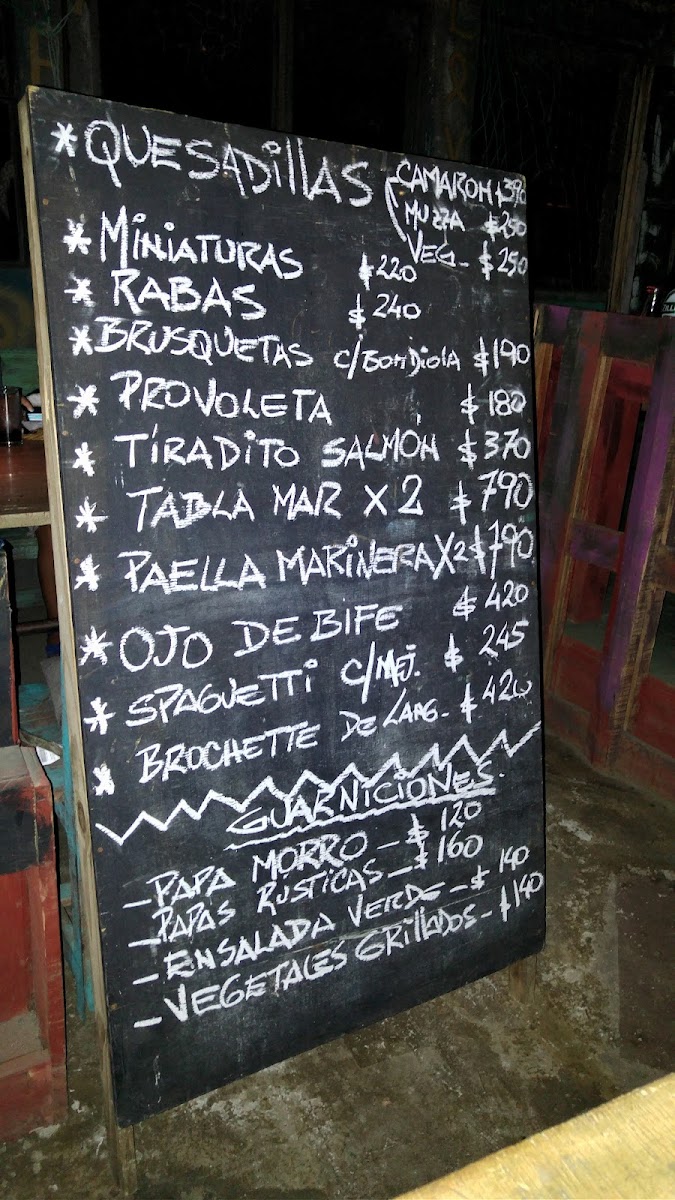 * QUESADILLAS CAMARON $390
MUZZA $250
VEG- $250
* MINIATURAS $220
* RABAS $240
* BRUSQUETAS c/BONDIOLA $190
* PROVOLETA $180
* TIRADITO SALMÓN $370
* TABLA MAR X 2 $790
* PAELLA MARINERA X2 $790
* OJO DE BIFE $420
* SPAGUETTI C/MEJ. $245
* BROCHETTE DE LANG- $420
GUARNICIONES
- PAPA MORRO - $120
- PAPAS RÚSTICAS - $160
- ENSALADA VERDE - $140
- VEGETALES GRILLADOS - $140